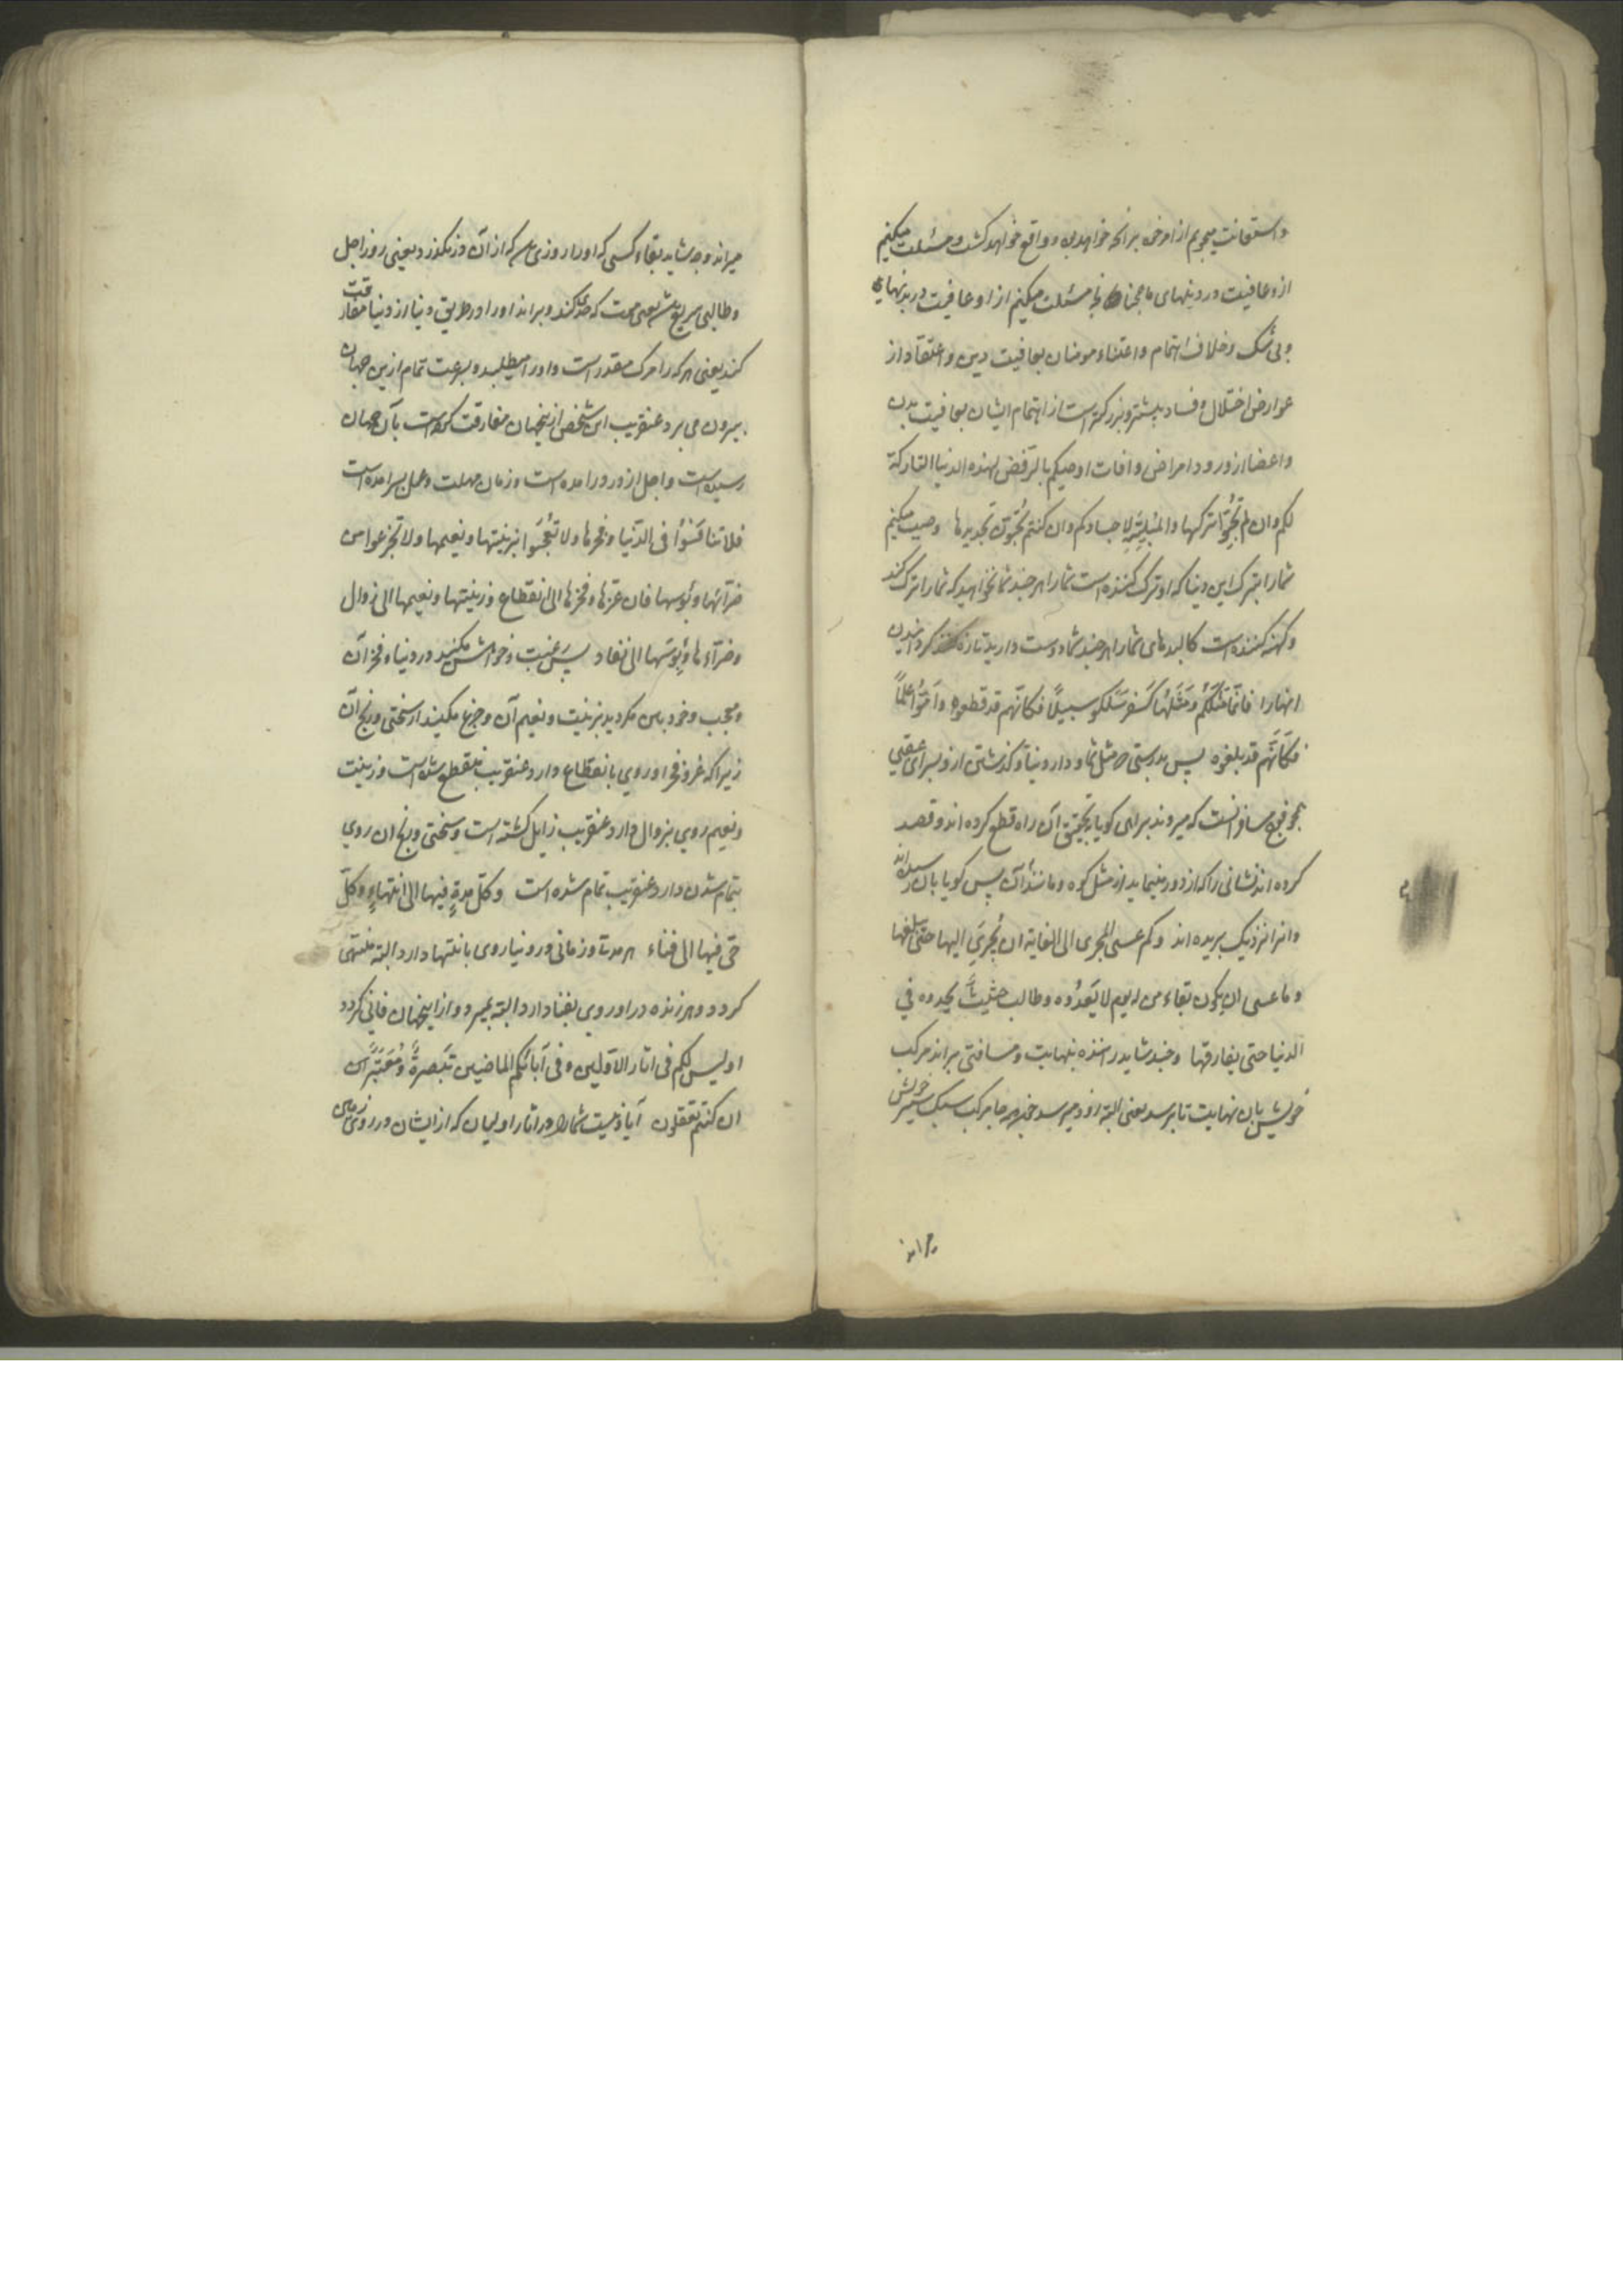 واستعانت میجویم از امر خود برانچه خواهد بود و واقع خواهد کشت و مسئلت میکنیم
ازو عافیت در دینهای ما همچنانکه مسئلت میکنیم ازاو عافیت در بدنهای
وبی شک و خلاف اهتمام واعتناء مومنان بعافیت دین واعتقاد از
عوارض اختلال و فساد بیشتر و بزرکتر است از اهتمام ایشان بعافیت بدن
واعضا از ورود امراض وافات اوصیکم بالرفض لهذه الدنیا التارکة
لکم وان لم تحبّوا ترکها والمبلیة لاجسادکم وان کنتم تحبّون تجدیدها وصیت میکنیم
شما را بترک این دنیا که او ترک کننده است شما را هر چند شما نخواهید که شما را ترک کند
وکهنه کننده است کالبدهای شما را هر چند شما دوست دارید تازه گردانیدن
انها را فانّما مَثَلُکُم ومَثَلُها کَسَفر سَلَکو سبیلاً فکانّهم قد قطعوه واَمّوُا عَلَماً
فکَانَّهم قد بلغوه پس بدرستی که مثل شما و دار دنیا و گذشتن ازو بسرای عقبی
همچو فوج مسافرانست که میروند براهی کویا بتحقیق آن راه قطع کرده اند و قصد
کرده اند نشانی را که از دور مینماید از مثل کوه و مانند آن پس کویا بان رسیده اند
وانرا نزدیک بریده اند وکم عسی المجری الی الغایة ان یُجرِیَ الیها حتی یبلغها
وما عسی ان یکون بقاء من له یوم لا یَعدُوه وطالب حثیث یحدوه فی
الدنیا حتی یفارقها وچند شاید راننده بنهایت ومسافتی براند مرکب
خویش بان نهایت تا برسد یعنی البته زود میرسد مرکب سبک سیر خویش
میراند
میراند و چه شاید بقاء کسی که اورا روزی که از آن در نکذرد یعنی روز اجل
وطالبی سریع یعنی موت که حدی کند و براند او را در طریق دنیا از دنیا مفارقت
کند یعنی هر که را مرک مقدر است و او را میطلبد و بسرعت تمام ازین جهان
بیرون می برد عنقریب این شخص ازینجهان مفارقت کرده است بآن جهان
رسیده است واجل از در درامده است وزمان مهلت وعمل بسرامده است
فلا تنافَسُوا فی الدّنیا وفخرها ولا تعجَبوا بزینتها ونعیمها ولا تجزعوا من
ضرّائها وبُؤسها فان عزّها وفخرها الی انقطاع وزینتها ونعیمها الی زوال
وضرّآءها وبؤسَها الی نفاد پس رغبت و خواهش مکنید در دنیا و فخر آن
ومعجب و خود بین مکردید بزینت و نعیم آن وجزع مکنید از سختی و رنج آن
زیرا که عز و فخر او روی بانقطاع دارد عنقریب منقطع شده است وزینت
ونعیم روی بزوال دارد عنقریب زایل کشته است و سختی و رنج ان روی
بتمام شدن دارد عنقریب تمام شده است وکلّ مدةٍ فیها الی انتهاءٍ وکلّ
حیّ فیها الی فناء هر مدت و زمانی در دنیا روی بانتها دارد البته منتهی
کردد و هر زنده در او روی بفنا دارد البته بمیرد و از اینجهان فانی کردد
اولیس لکم فی اثار الاوّلین وفی آبائکم الماضین تبصرةٌ ومُعتَبَرٌ
ان کنتم تعقلون آیا نیست شما را در اثار اولیان که از ایشان در روی زمین